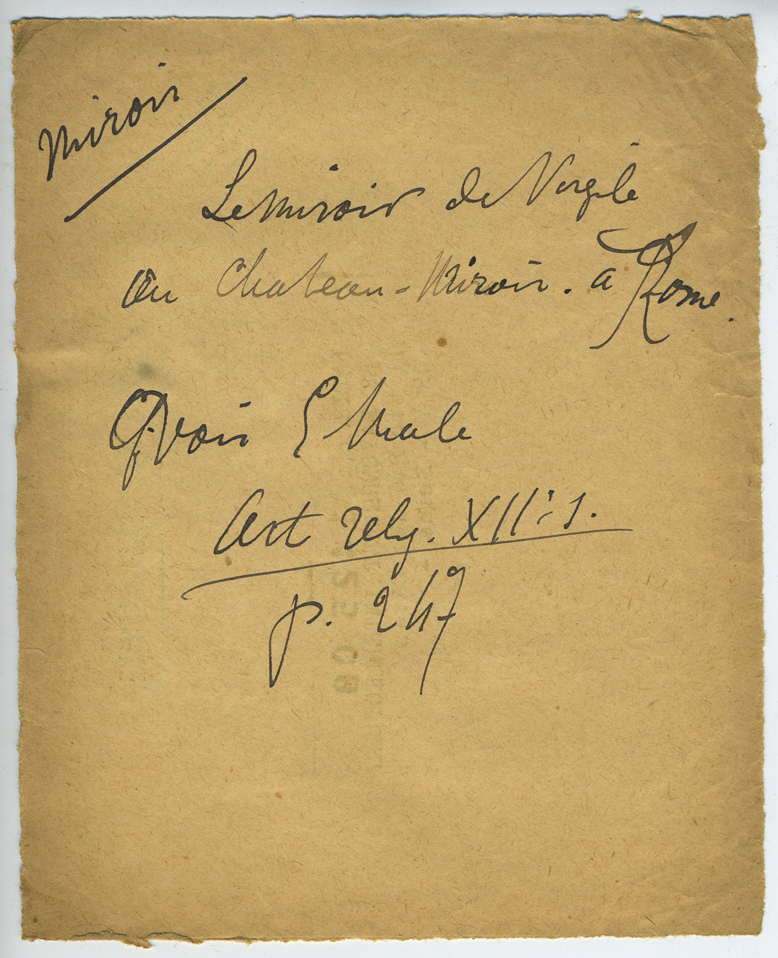 Miroir
Le Miroir de Vergile
au Chateau-Miroir. a Rome.
voir E Male
Art relig. XIIe s.
p. 247